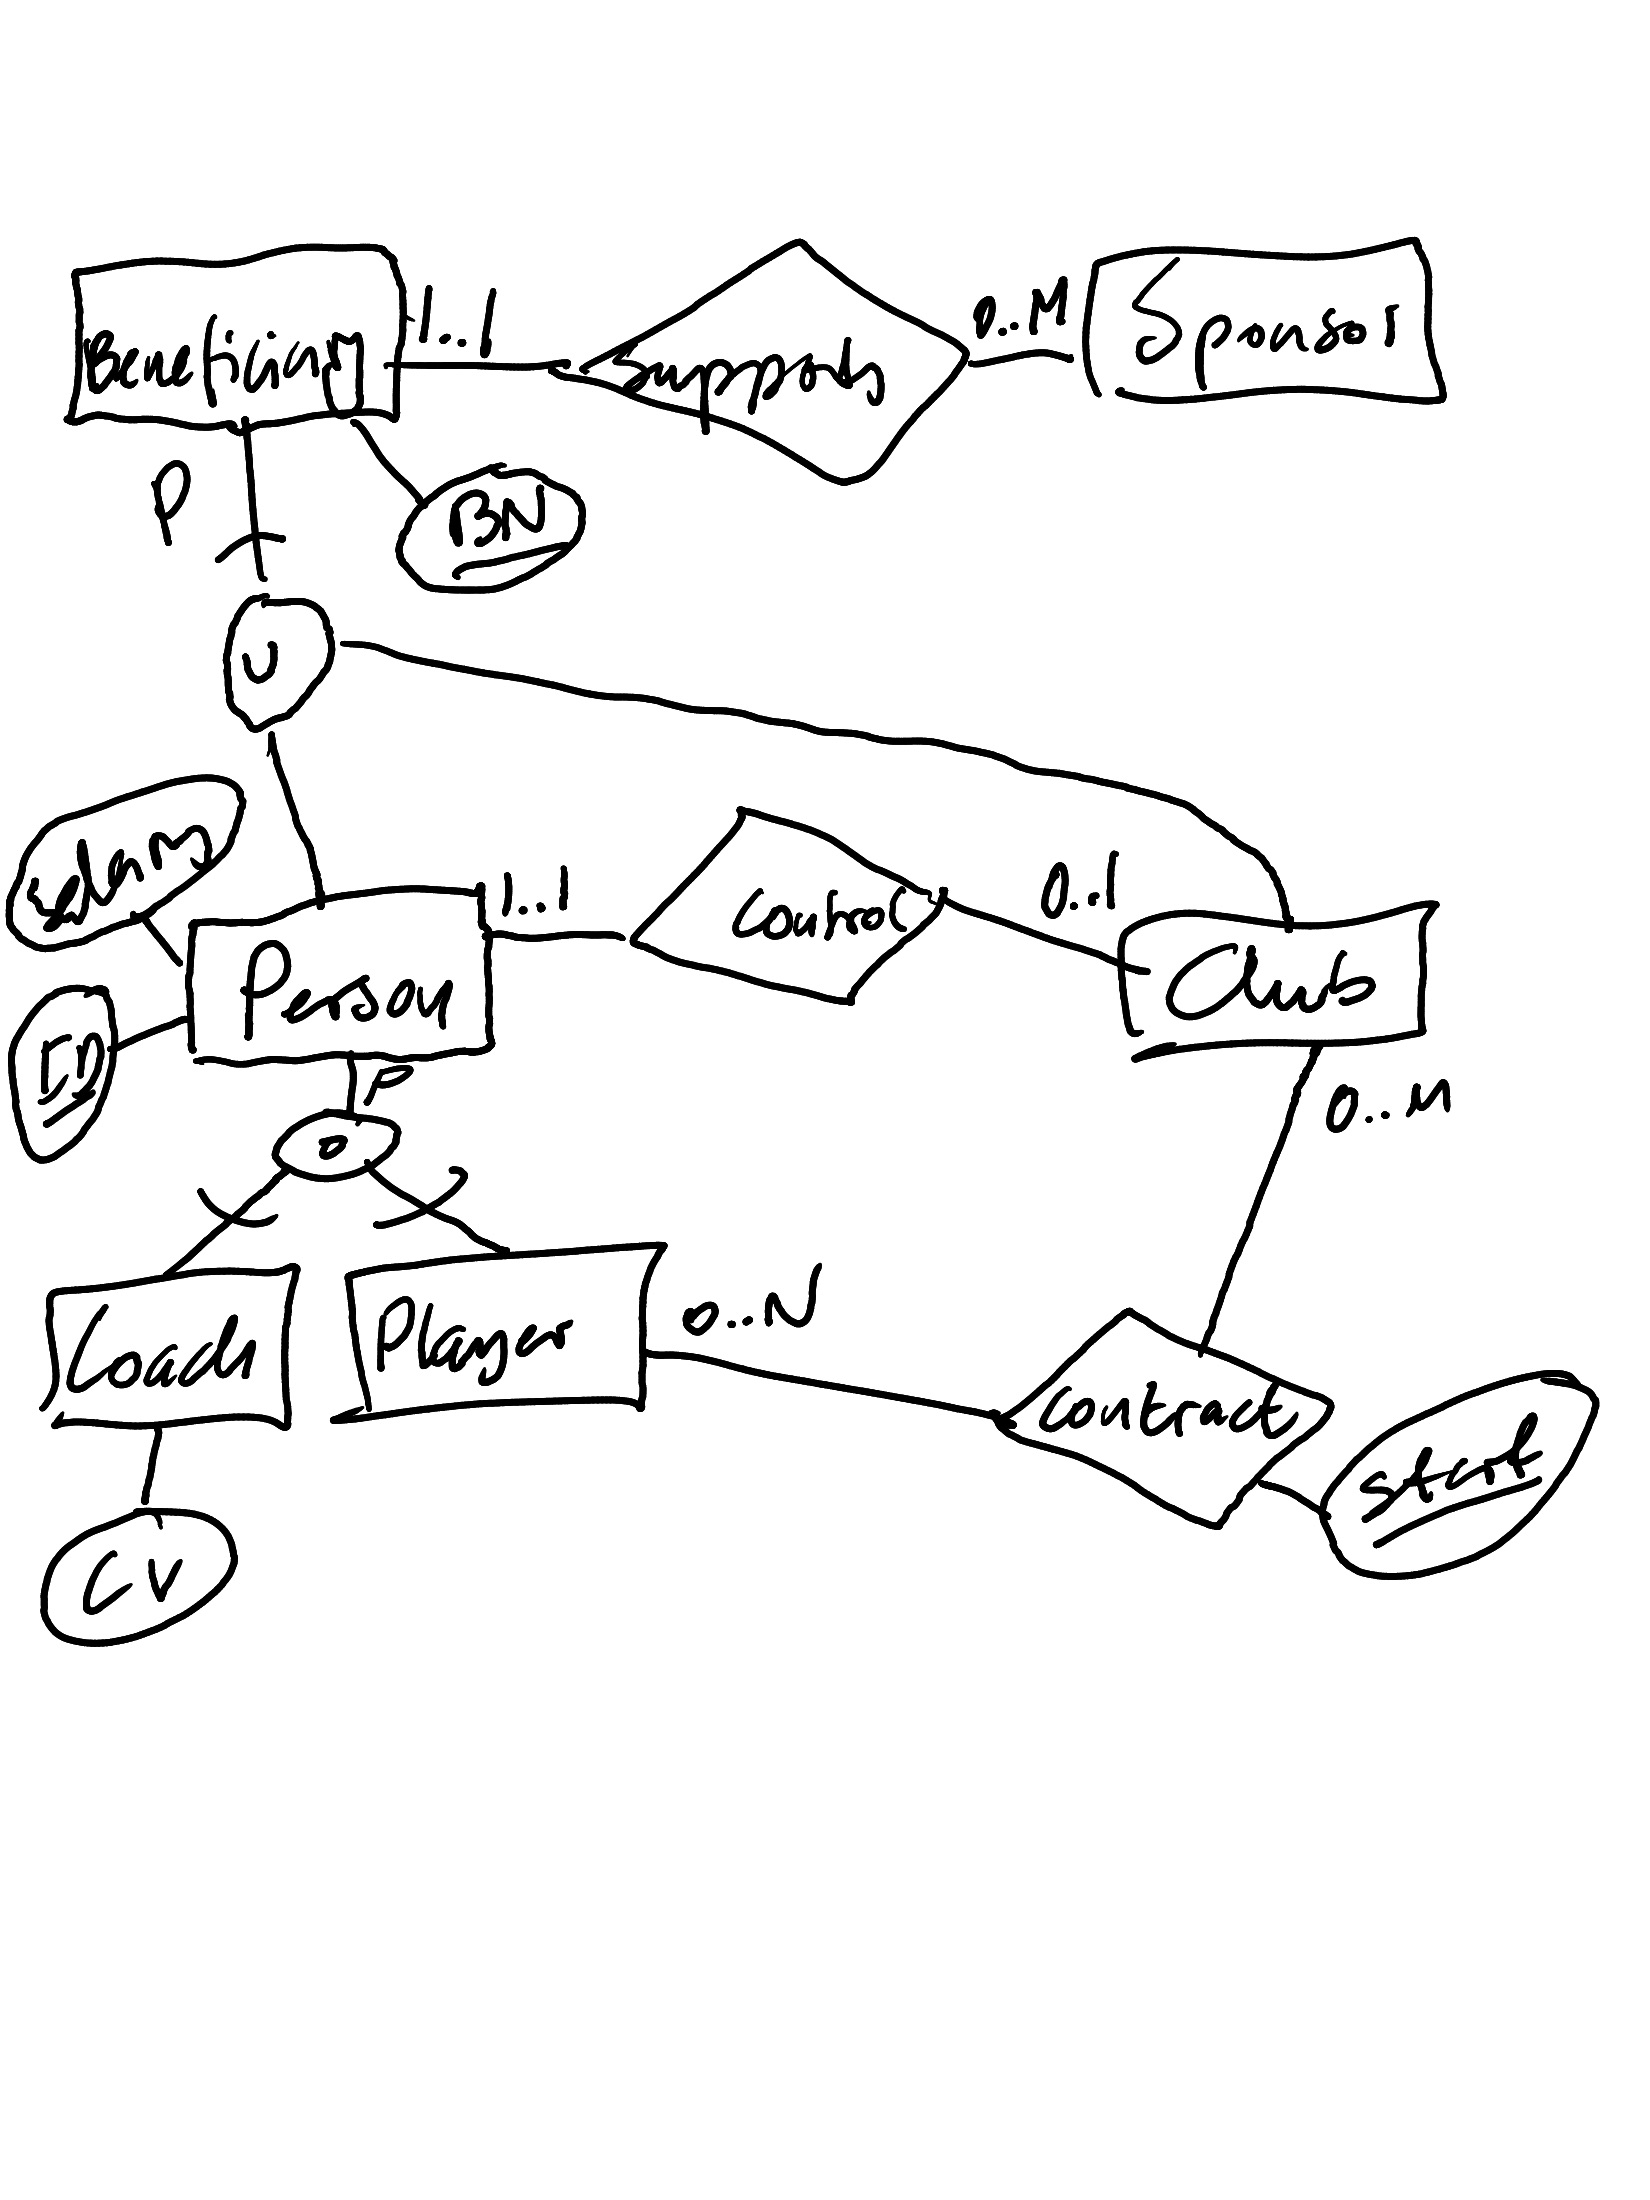 Beneficiary
1..1
Supports
0..M
Sponsor
P
BN
U
Salary
Person
ID
1..1
Control
0..1
Club
P
O
0..M
Coach
Player
0..N
contract
start
CV